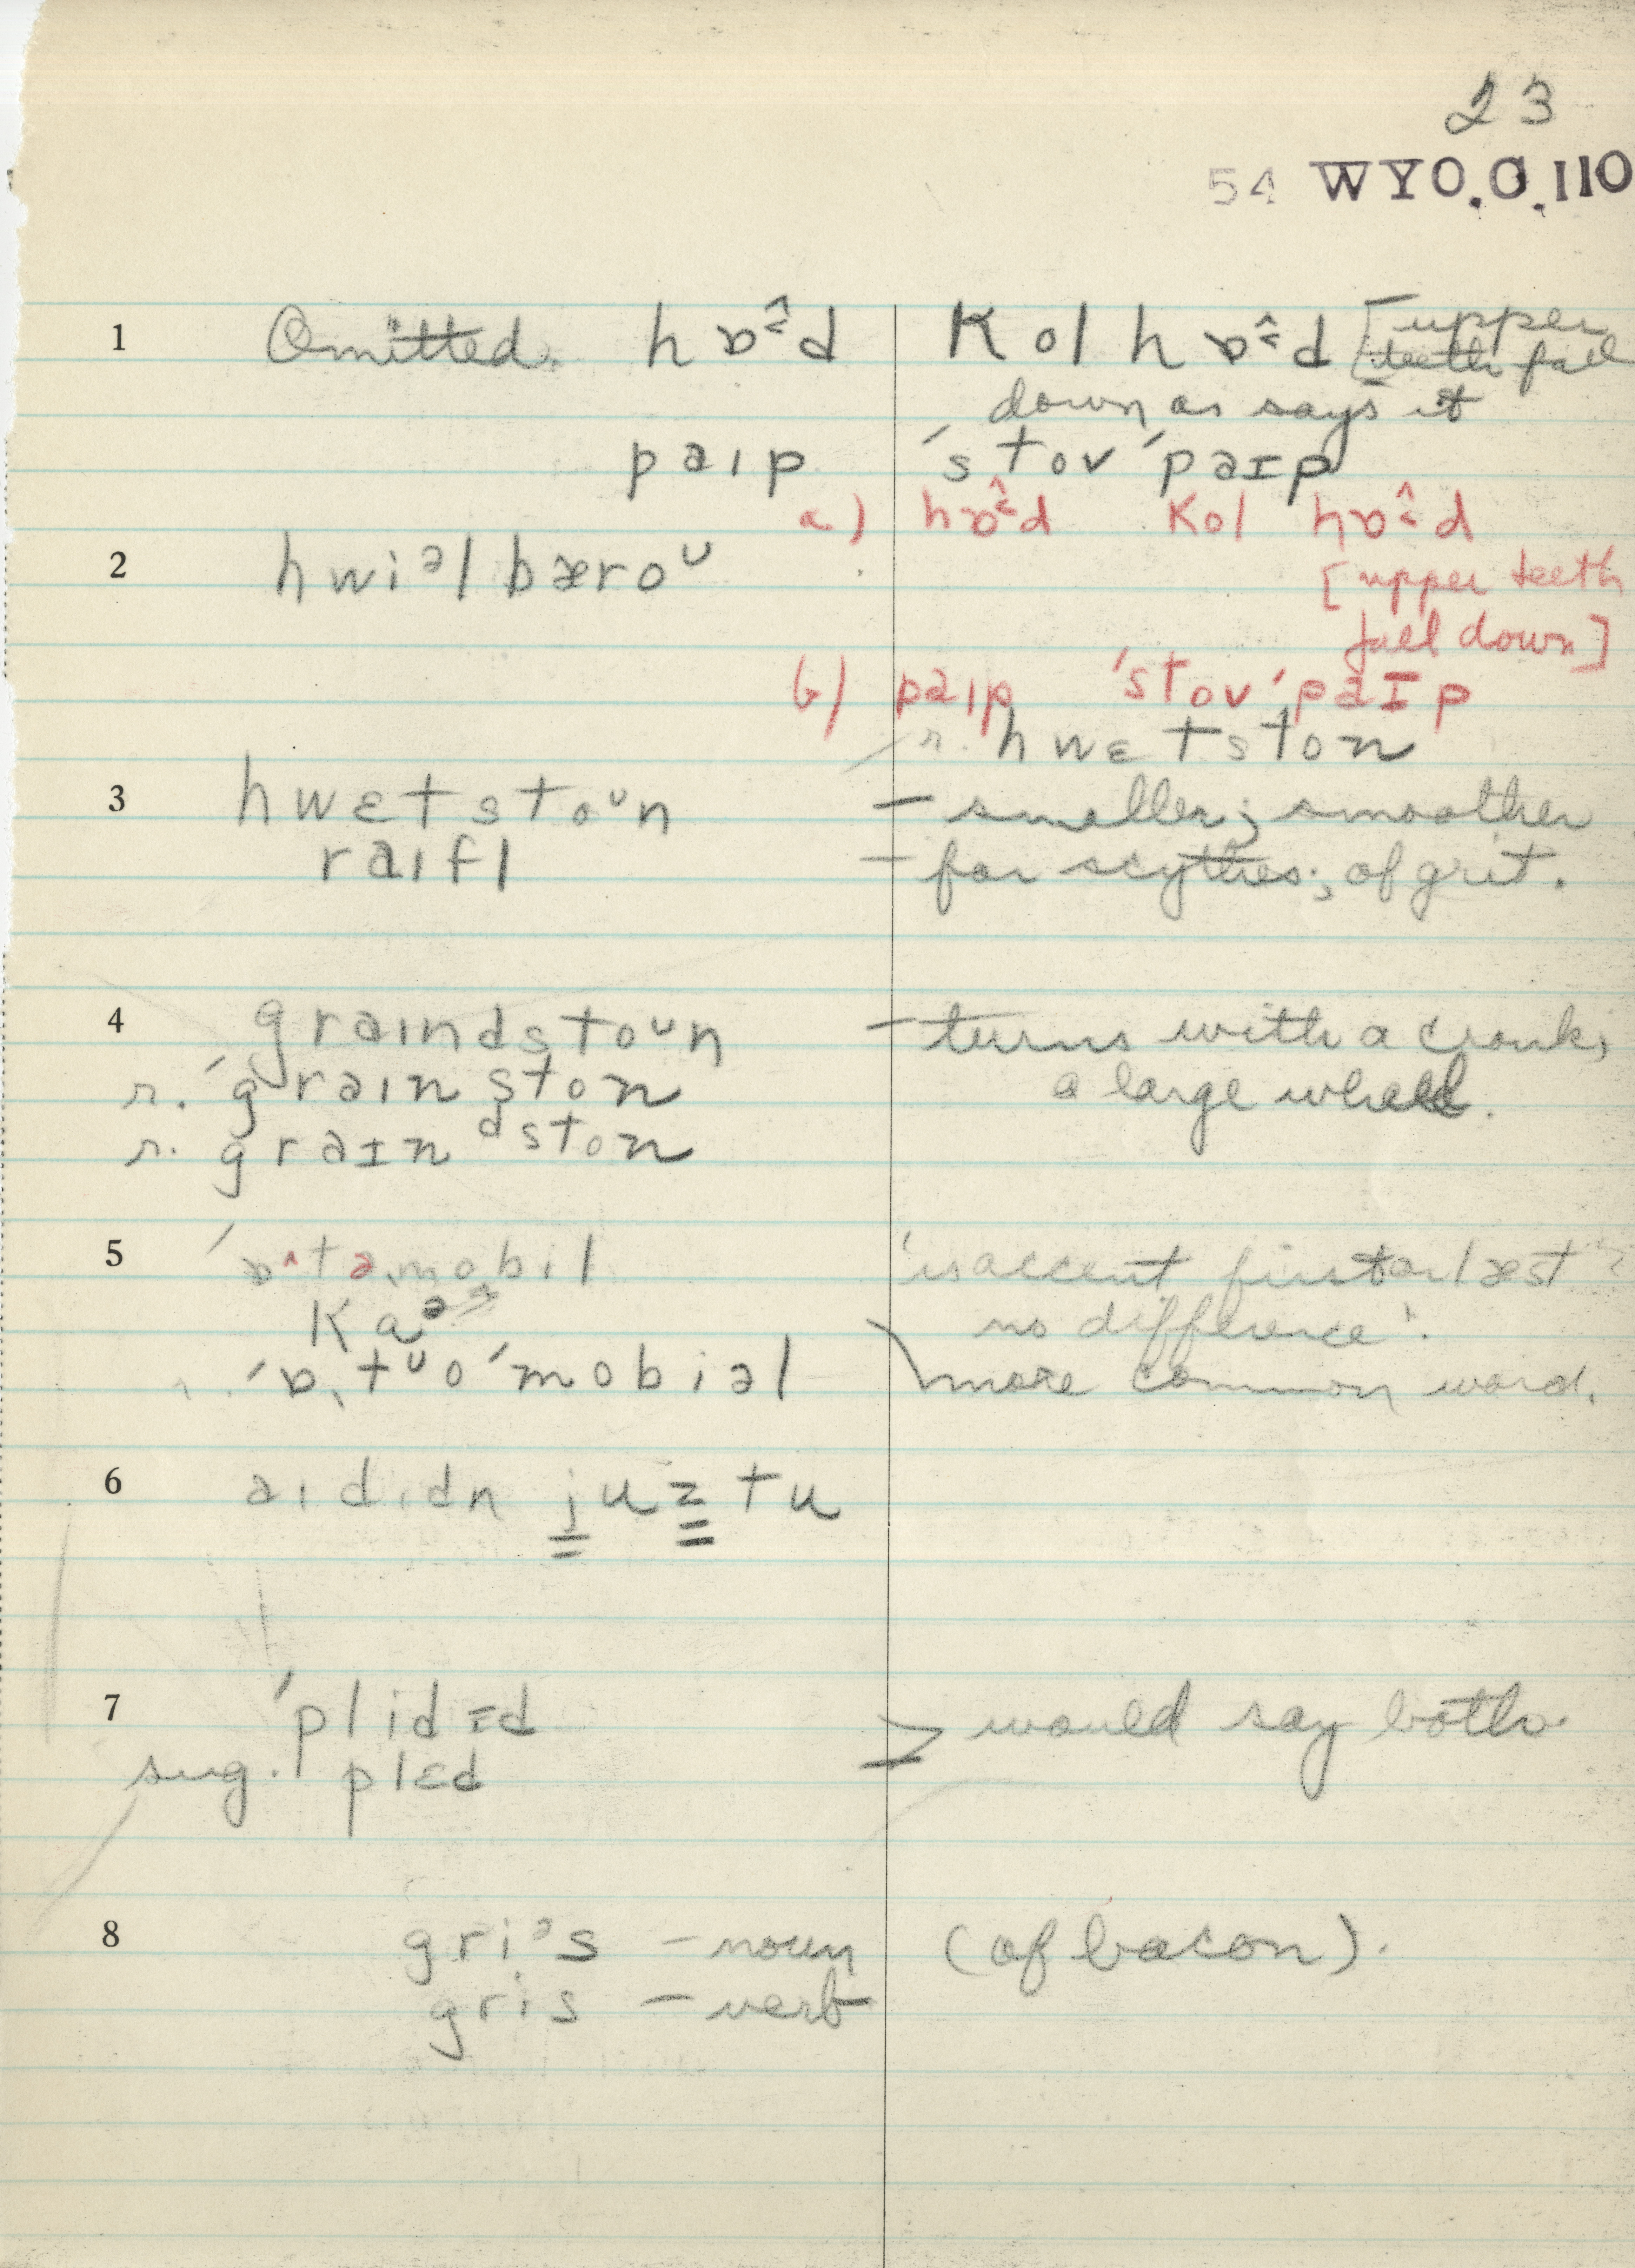 23
54 WYO.C.110
1 Omitted. hɒ̂d kol hɒ̂d [upper
teeth fall
down as says it
paɪp ˈstovˈpaɪp
a) hɒ̂d kol hɒ̂d
2 hwiᵊl bæroᵁ
[upper teeth
fall down]
b) paɪp ˈstovˈpaɪp
r. hwɛtston
3 hwɛtstoᵁn – smaller; smoother
raɪfl – for scythes; of grit.
4 graɪndstoᵁn – turns with a crank,
r. ˈgraɪnston a large wheel.
r. graɪnᵈston
5 ˈɒ^təmobil 'is accent first or last
ka no difference'.
r. ˈɒtᵁoˈmobiəl more common word.
6 aɪ dɪdn juz tu
7 ˈplidɪd would say both.
sug. plɛd
8 griᵊs – noun (of bacon).
gris – verb